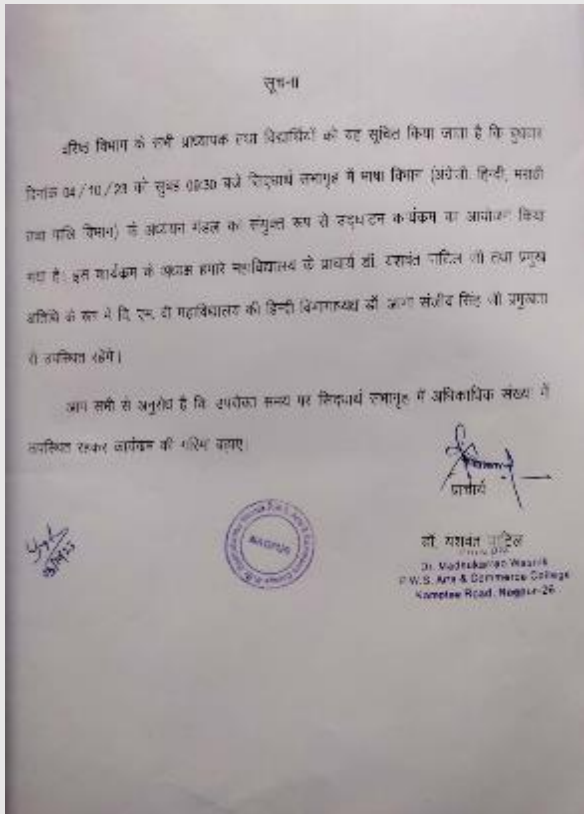 सूचना
वरिष्ठ विभाग के सभी प्राध्यापक तथा विद्यार्थियों को यह सूचित किया जाता है कि बुधवार
दिनांक 04/10/23 को सुबह 09:30 बजे सिद्धार्थ सभागृह में भाषा विभाग (अंग्रेजी, हिन्दी, मराठी
तथा पालि विभाग) के अध्ययन मंडल का संयुक्त रूप से उद्घाटन कार्यक्रम का आयोजन किया
गया है। इस कार्यक्रम के अध्यक्ष हमारे महाविद्यालय के प्राचार्य डॉ. यशवंत पाटिल जी तथा प्रमुख
अतिथि के रूप में वि. एम. वी महाविद्यालय की हिन्दी विभागाध्यक्ष डॉ. आभा संजीव सिंह जी प्रमुखता
से उपस्थित रहेंगे।
आप सभी से अनुरोध है कि उपरोक्त समय पर सिद्धार्थ सभागृह में अधिकाधिक संख्या में
उपस्थित रहकर कार्यक्रम की गरिमा बढ़ाए।
प्राचार्य
डॉ. यशवंत पाटिल
Dr. Madhukarrao Wasnik
P.W.S. Arts & Commerce College
Kamptee Road, Nagpur-26
NAGPUR